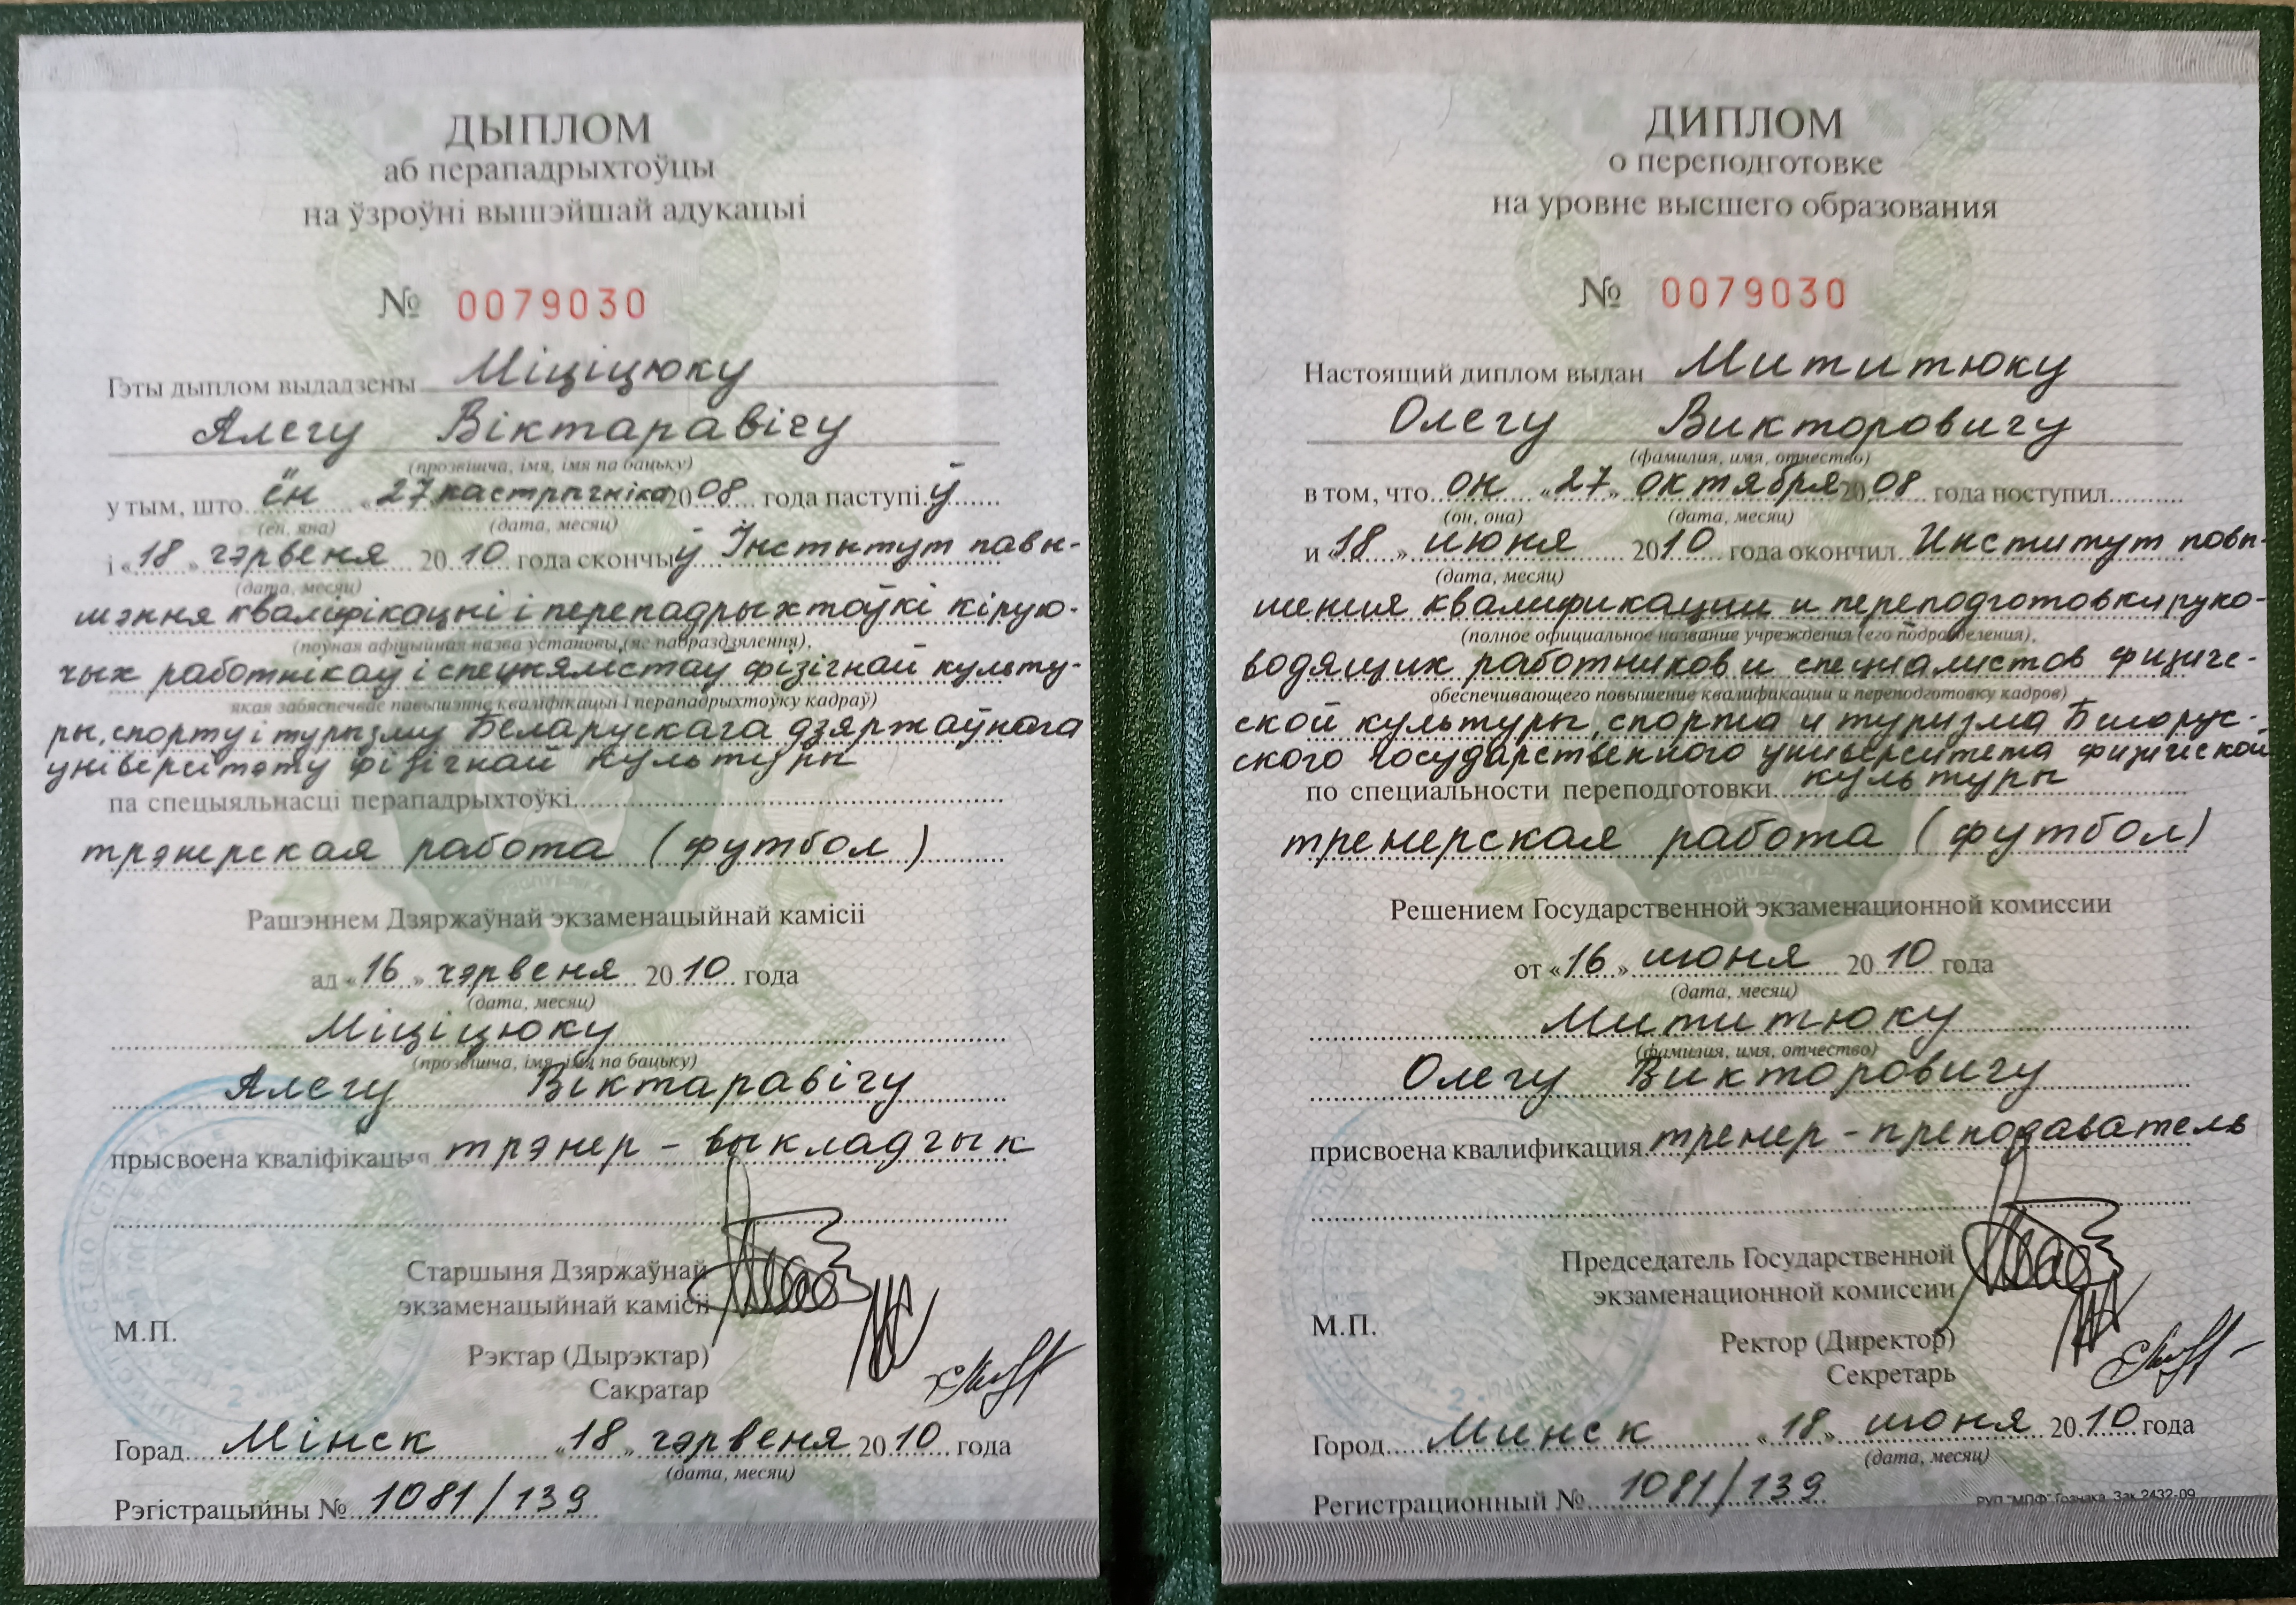 ДЫПЛОМ
аб перападрыхтоўцы
на ўзроўні вышэйшай адукацыі
№ 0079030
Гэты дыплом выдадзены Міціцюку
Алегу Віктаравічу
(прозвішча, імя, імя па бацьку)
у тым, што ён «27» кастрычніка 2008 года паступіў
(ён, яна) (дата, месяц)
і «18» чэрвеня 2010 года скончыў Інстытут павы-
(дата, месяц)
шэння кваліфікацыі і перападрыхтоўкі кірую-
(поўная афіцыйная назва установы (яе падраздзялення),
чых работнікаў і спецыялістаў фізічнай культу-
якая забяспечвае павышэнне кваліфікацыі і перападрыхтоўку кадраў)
ры, спорту і турызму Беларускага дзяржаўнага
універсітэту фізічнай культуры
па спецыяльнасці перападрыхтоўкі
трэнерская работа (футбол)
Рашэннем Дзяржаўнай экзаменацыйнай камісіі
ад «16» чэрвеня 2010 года
(дата, месяц)
Міціцюку
(прозвішча, імя, імя па бацьку)
Алегу Віктаравічу
прысвоена кваліфікацыя трэнер - выкладчык
Старшыня Дзяржаўнай
экзаменацыйнай камісіі
М.П.
Рэктар (Дырэктар)
Сакратар
Горад Мінск «18» чэрвеня 2010 года
(дата, месяц)
Рэгістрацыйны № 1081/139
ДИПЛОМ
о переподготовке
на уровне высшего образования
№ 0079030
Настоящий диплом выдан Мититюку
Олегу Викторовичу
(фамилия, имя, отчество)
в том, что он «27» октября 2008 года поступил
(он, она) (дата, месяц)
и «18» июня 2010 года окончил Институт повы-
(дата, месяц)
шения квалификации и переподготовки руко-
(полное официальное название учреждения (его подразделения),
водящих работников и специалистов физиче-
обеспечивающего повышение квалификации и переподготовку кадров)
ской культуры, спорта и туризма Белорус-
ского государственного университета физической
культуры
по специальности переподготовки
тренерская работа (футбол)
Решением Государственной экзаменационной комиссии
от «16» июня 2010 года
(дата, месяц)
Мититюку
(фамилия, имя, отчество)
Олегу Викторовичу
присвоена квалификация тренер - преподаватель
Председатель Государственной
экзаменационной комиссии
М.П.
Ректор (Директор)
Секретарь
Город Минск «18» июня 2010 года
(дата, месяц)
Регистрационный № 1081/139
РУП "МПФ" Гознака. Зак.2432-09